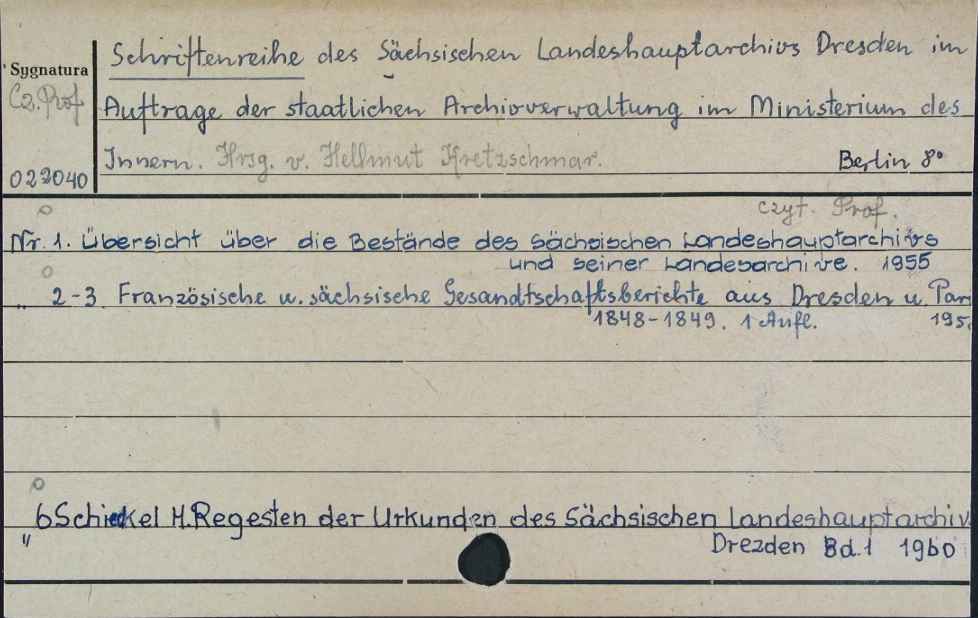 Schriftenreihe des Sächsischen Landeshauptarchivs Dresden im
Sygnatura
Cz. Prof
Auftrage der staatlichen Archivverwaltung im Ministerium des
Innern. Hrsg. v. Hellmut Kretzschmar. Berlin 8°
022040
czyt. Prof.
Nr. 1. Übersicht über die Bestände des sächsischen Landeshauptarchivs
und seiner Landesarchive. 1955
„ 2-3 Französische u. sächsische Gesandtschaftsberichte aus Dresden u. Par
1848-1849. 1 Aufl. 195
6 Schieckel H. Regesten der Urkunden des Sächsischen Landeshauptarchiv
„ Drezden Bd. 1 1960